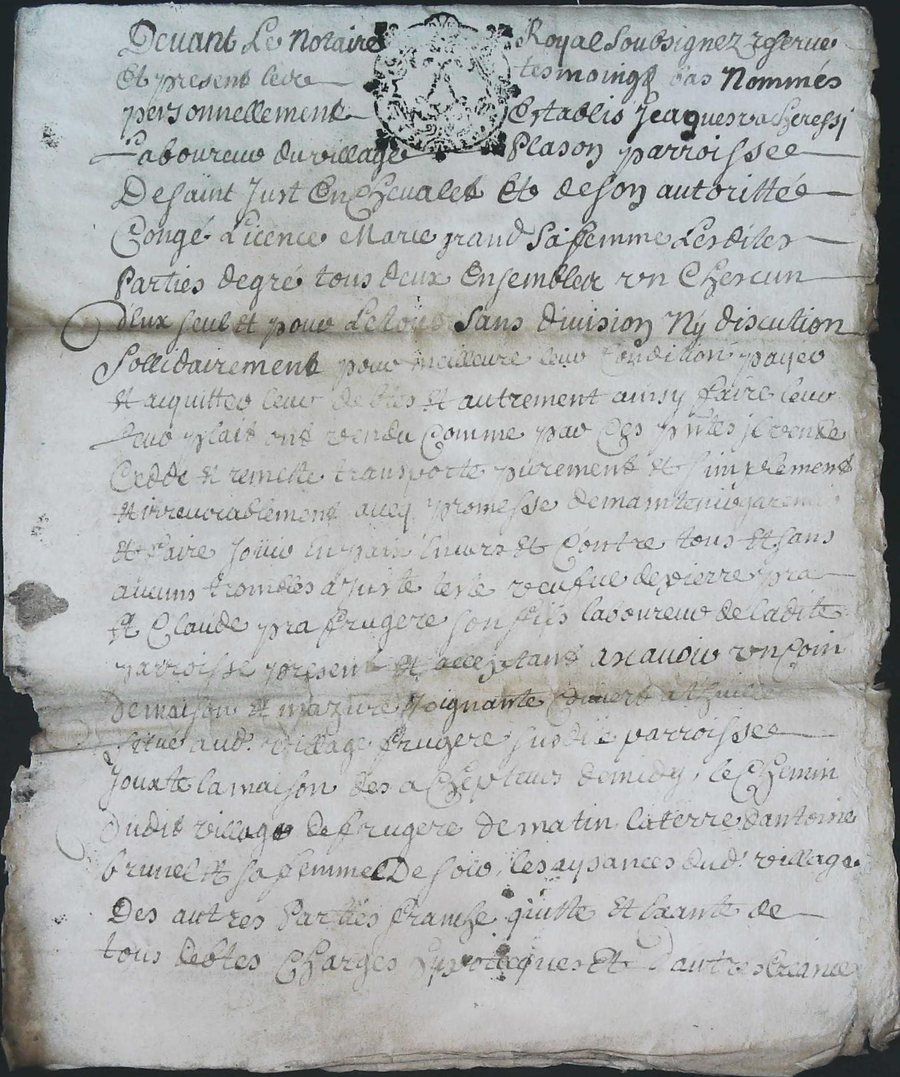 Devant Le Notaire Royal Soubsignez reserve
Et present les tesmoings bas Nommés
personnellement Establis Jeaques vacheressy
Laboureur du village Plason parroissee
De Saint Just En Chevalet Et de son autorittée
Congé Licence Marie grand Sa femme Lesdites
Parties de gré tous deux Ensembler un Chescun
d'eux seul et pour Le tout Sans division Ny discution
Sollidairement pour meilleure leur Condition payer
et aquitter leur debtes et autrement ainsy faire leur
leur plait ont vendu Comme par Ces pntes Il vende
Cedde et remette transporte purement et simplement
et irrevocablement aveq promesse de maintenir
Et faire Jouir En paix Envers et Contre tous Et sans
aucuns trombles a veufve de pierre pra
Et Claude pra frugere son fils laboureur de ladite
parroisse present et acceptant a scavoir un Coin
de maison et mazure Joignante Couvert a thuille
situé aud. village frugere susdite parroissee
Jouxte la maison des achepturs de midy, le Chemin
Dudit village de frugere de matin la terre dantoine
brunel et sa femme De soir, les aysances dud. village
Des autres Parties franche quitte Et Exante de
tous debtes Charges Et d'autres